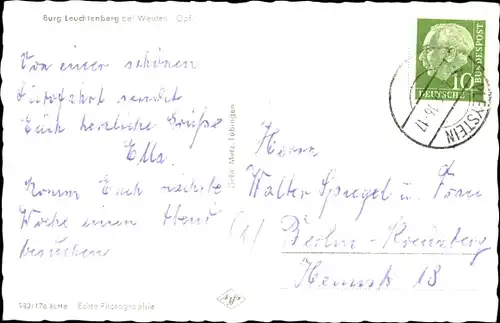 Burg Leuchtenberg bei Weiden Opf.
Von einer schönen
Autofahrt sendet
Euch herzliche Grüße
Ella.
Komm Euch nächste
Woche einen Abend
besuchen
Gebr. Metz, Tübingen
10
BUNDESPOST
DEUTSCHE
YSTEIN
16-17
Herrn
Walter Spiegel u. Frau
Berlin-Kreuzberg
18
Echte Photographie